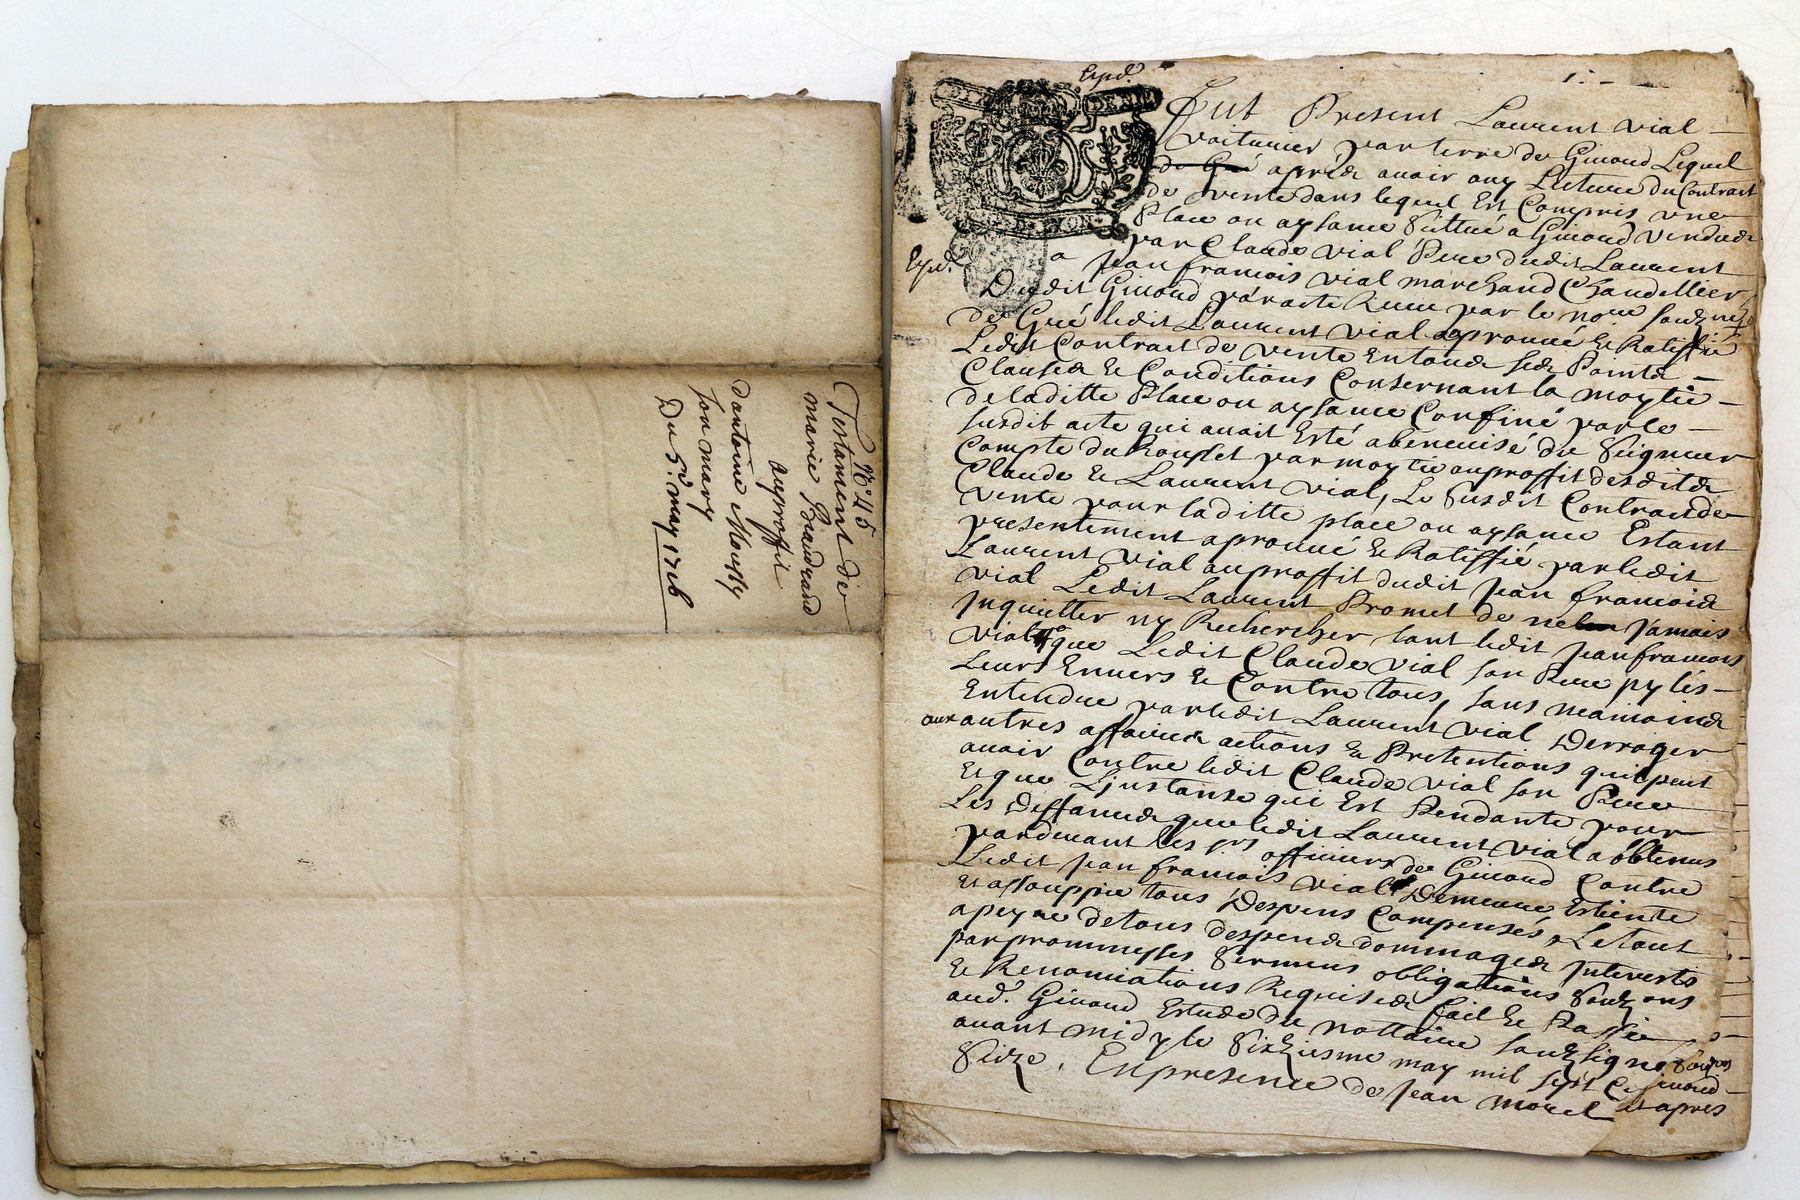 N.° 245
Testament de
marie Beaudrand
auproffit
dantoine Moussy
son mary
Du 5.e may 1716
Exped.
DENIE
LYON
Exped.
1.
Fut Present Laurent vial
voiturier par terre de Givord Lequel
de Gré aprés avoir ouy Lecture du Contract
de vente dans lequel Est Compris une
Place ou aysance Scittué a Givord vendue
par Claude vial Pere dudit Laurent
a Jean francois vial marchand Chandellier
Dudit Givord par acte Receu par le nore souzné
de Gré ledit Laurent vial aprouvé & Ratiffié
Ledit Contract de vente En tous ses Points
Clauses & Conditions Consernant la moytié
de laditte Place ou aysance Confiné par le
susdit acte qui avait Esté abenevisé du Seigneur
Compte du Rousset par moytié auproffit desdits
Claude & Laurent vial, Le Susdit Contract de
vente pour laditte place ou aysance Estant
presentement aprouvé & Ratiffié par ledit
Laurent vial auproffit dudit Jean francois
vial Ledit Laurent Promet de ne Jamais
Inquietter ny Rechercher tant ledit Jean francois
vial que Ledit Claude vial son Pere
Leurs Envers & Contre tous, sans neaimoins
Entendue par ledit Laurent vial Derroger
aux autres affaires actions & Pretentions quil peut
avoir Contre ledit Claude vial son Pere
Et que Ljnstanse qui Est Pendante pour
Les Deffances que ledit Laurent vial a obtenus
pardevant les srs officiers de Givord Contre
Ledit Jean francois vial Demeure Esteinte
Et assouppie tous Despens Compensés, Le tout
apeyne de tous despens dommages Interests
par prommesses Sermens obligations Souz
& Renonciations Requises fait & Passé
aud. Givord Estude du nottaire souzsigné
avant midy le Sixziesme may mil sept Cents
Seize, En presence de Jean Morel